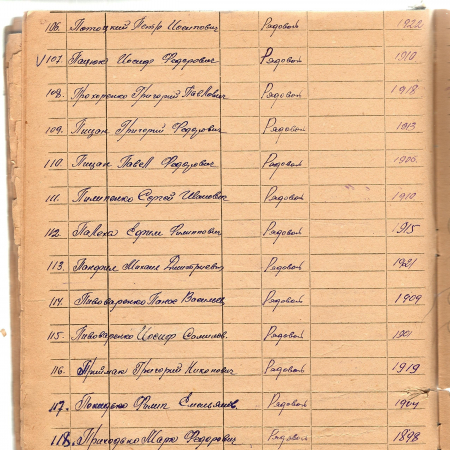 106. Потоцкий Петр Иосипович Рядовой 1922
√ 107. Пацюк Иосиф Федорович Рядовой 1910
108. Прохоренко Григорий Павлович Рядовой 1918
109. Пицан Григорий Федорович Рядовой 1913
110. Пицан Павел Федорович Рядовой 1906
111. Пилипенко Сергей Иванович Рядовой 1910
112. Палеха Ефим Филиппович Рядовой 1915
113. Панфил Михаил Дмитриевич Рядовой 1921
114. Пивоваренко Панас Васильев Рядовой 1909
115. Пивоваренко Иосиф Самилов. Рядовой 1901
116. Приймак Григорий Никонович Рядовой 1919
117. Филип Емельянов Рядовой 1904
118. Приходько Марк Федорович Рядовой 1898